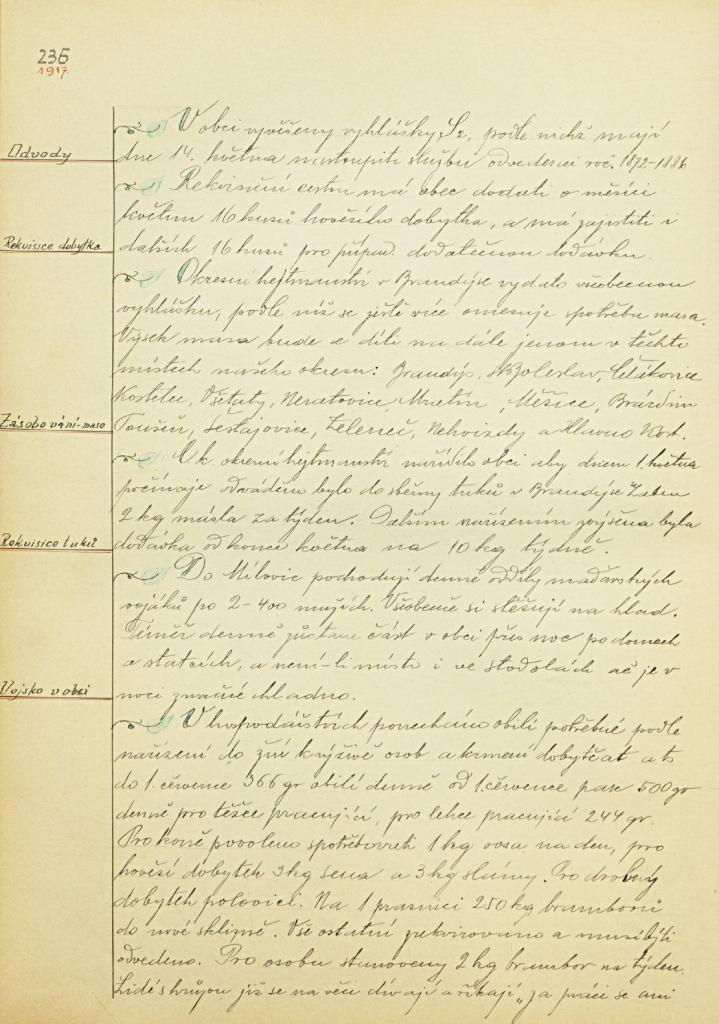 236
1917.
V obci vyvěšeny vyhlášky, podle nichž mají
Odvody
dne 14. května nastoupiti službu odvedenci roč. 1872-1886
Rekvisiční cestou má obec dodati v měsíci
květnu 16 kusů hovězího dobytka, a má zajistiti i
Rekvisice dobytka
dalších 16 kusů pro případ. dodatečnou dodávku.
Okresní hejtmanství v Brandýse vydalo všeobecnou
vyhlášku, podle níž se ještě více omezuje spotřeba masa.
Výsek masa bude se díti na dále jenom v těchto
místech našeho okresu: Brandýs, St. Boleslav, Čelákovice
Kostelec, Všetaty, Neratovice, Mratín, Měšice, Brázdim
Zásobování-maso
Toušeň, Šestajovice, Zeleneč, Nehvizdy a Hlavno Kost.
C. k. okresní hejtmanství nařídilo obci aby dnem 1. května
počínaje odváděno bylo do sběrny tuků v Brandýse Laben
2 kg másla za týden. Dalším nařízením zvýšena byla
Rekvisice tuků
dodávka od konce května na 10 kg týdně.
Do Milovic pochodují denně oddíly maďarských
vojáků po 2-400 mužích. Všeobecně si stěžují na hlad.
Téměř denně zůstane část v obci přes noc po domech
a statcích, a není-li místo i ve stodolách ač je v
Vojsko v obci
noci značně chladno.
V hospodářstvích ponecháno obilí potřebné podle
nařízení do žní k výživě osob a krmení dobytčat a to
do 1. července 366 gr obilí denně od 1. července pak 500 gr
denně pro těžce pracující, pro lehce pracující 244 gr.
Pro koně povoleno spotřebovati 1 kg ovsa na den, pro
hovězí dobytek 3 kg sena a 3 kg slámy. Pro drobný
dobytek polovici. Na 1 prasnici 250 kg bramborů
do nové sklizně. Vše ostatní zrekvirováno a musí býti
odvedeno. Pro osobu stanoveny 2 kg brambor na týden.
Lidé s hrůzou již se na věci dívají a říkají „za práci se ani